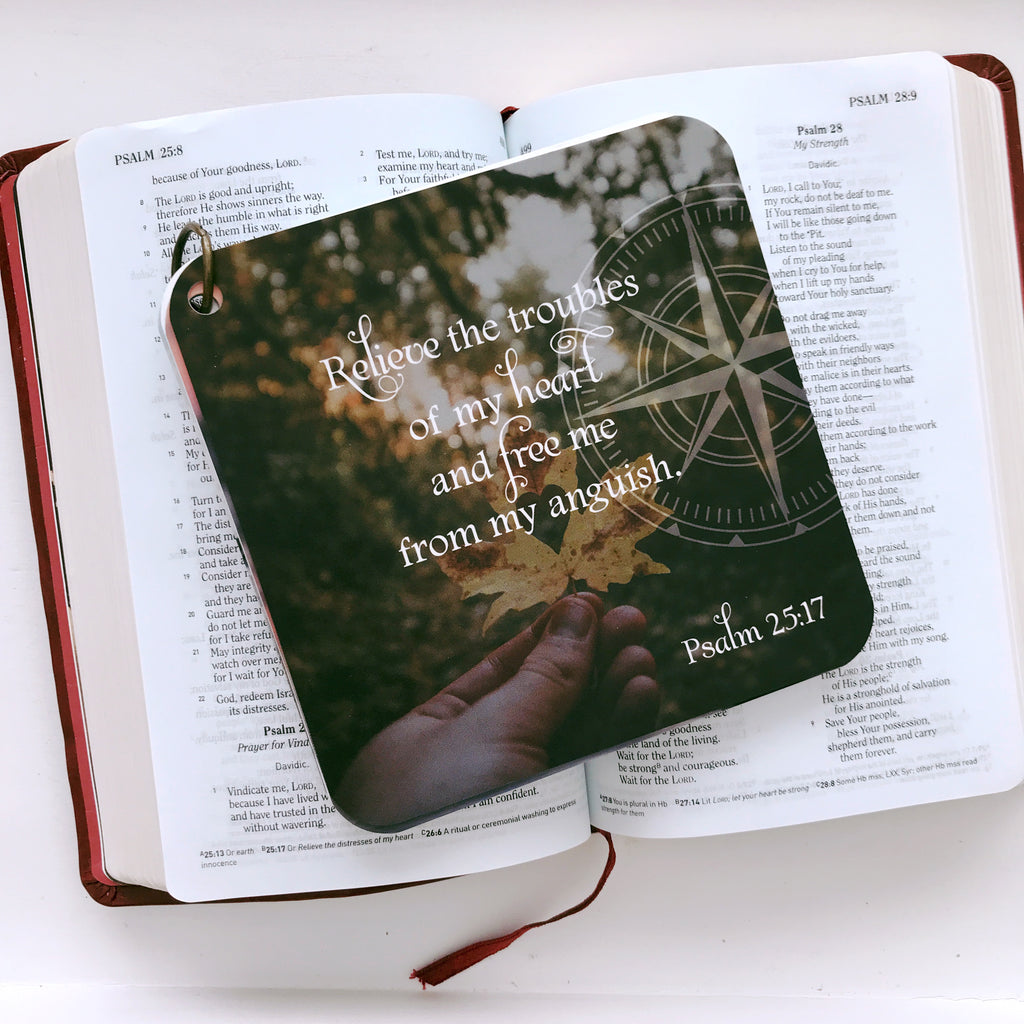 PSALM 25:8
because of Your goodness, LORD.
8 The LORD is good and upright;
therefore He shows sinners the way.
9 He leads the humble in what is right
and teaches them His way.
10 All the LORD's ways
11
12
13
14
15
16 Turn t
for I an
17 The dist
bring me
18 Consider
and take a
19 Consider
they are
and they ha
20 Guard me an
do not let me
for I take refu
21 May integrity
watch over me,
for I wait for Yo
22 God, redeem Isra
its distresses.
Psalm 2
Prayer for Vind
Davidic.
1 Vindicate me, LORD,
because I have lived w
and have trusted in the
without wavering.
2 Test me, LORD, and try me;
examine my heart and
3 For Your faithful
I am confident.
A25:13 Or earth B25:17 Or Relieve the distresses of my heart C26:6 A ritual or ceremonial washing to express
innocence
Relieve the troubles
of my heart
and free me
from my anguish.
Psalm 25:17
499
PSALM 28:9
see
goodness
the land of the living.
Wait for the LORD;
be strong and courageous.
Wait for the LORD.
Psalm 28
My Strength
Davidic.
1 LORD, I call to You;
my rock, do not be deaf to me.
If You remain silent to me,
I will be like those going down
to the Pit.
Listen to the sound
of my pleading
when I cry to You for help,
when I lift up my hands
toward Your holy sanctuary.
do not drag me away
with the wicked,
the evildoers,
speak in friendly ways
with their neighbors
malice is in their hearts.
them according to what
they have done—
according to the evil
their deeds.
them according to the work
their hands;
them back
they deserve.
they do not consider
LORD has done
of His hands,
them down and not
them.
be praised,
heard the sound
strength
in Him,
helped.
heart rejoices,
Him with my song.
The LORD is the strength
of His people;
He is a stronghold of salvation
for His anointed.
9 Save Your people,
bless Your possession,
shepherd them, and carry
them forever.
A27:8 You is plural in Hb B27:14 Lit LORD; let your heart be strong C28:8 Some Hb mss, LXX, Syr; other Hb mss read
strength for them